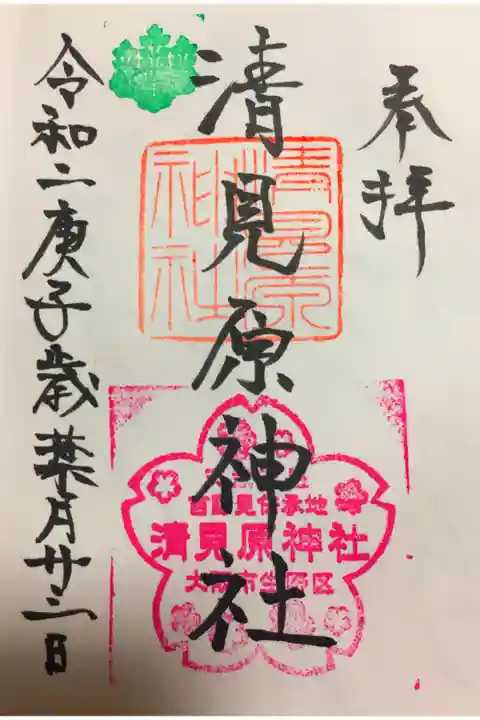 奉拝
清見原神社
令和二庚子歳葉月廿三日
清見原神社
清見原神社
大阪市生野区